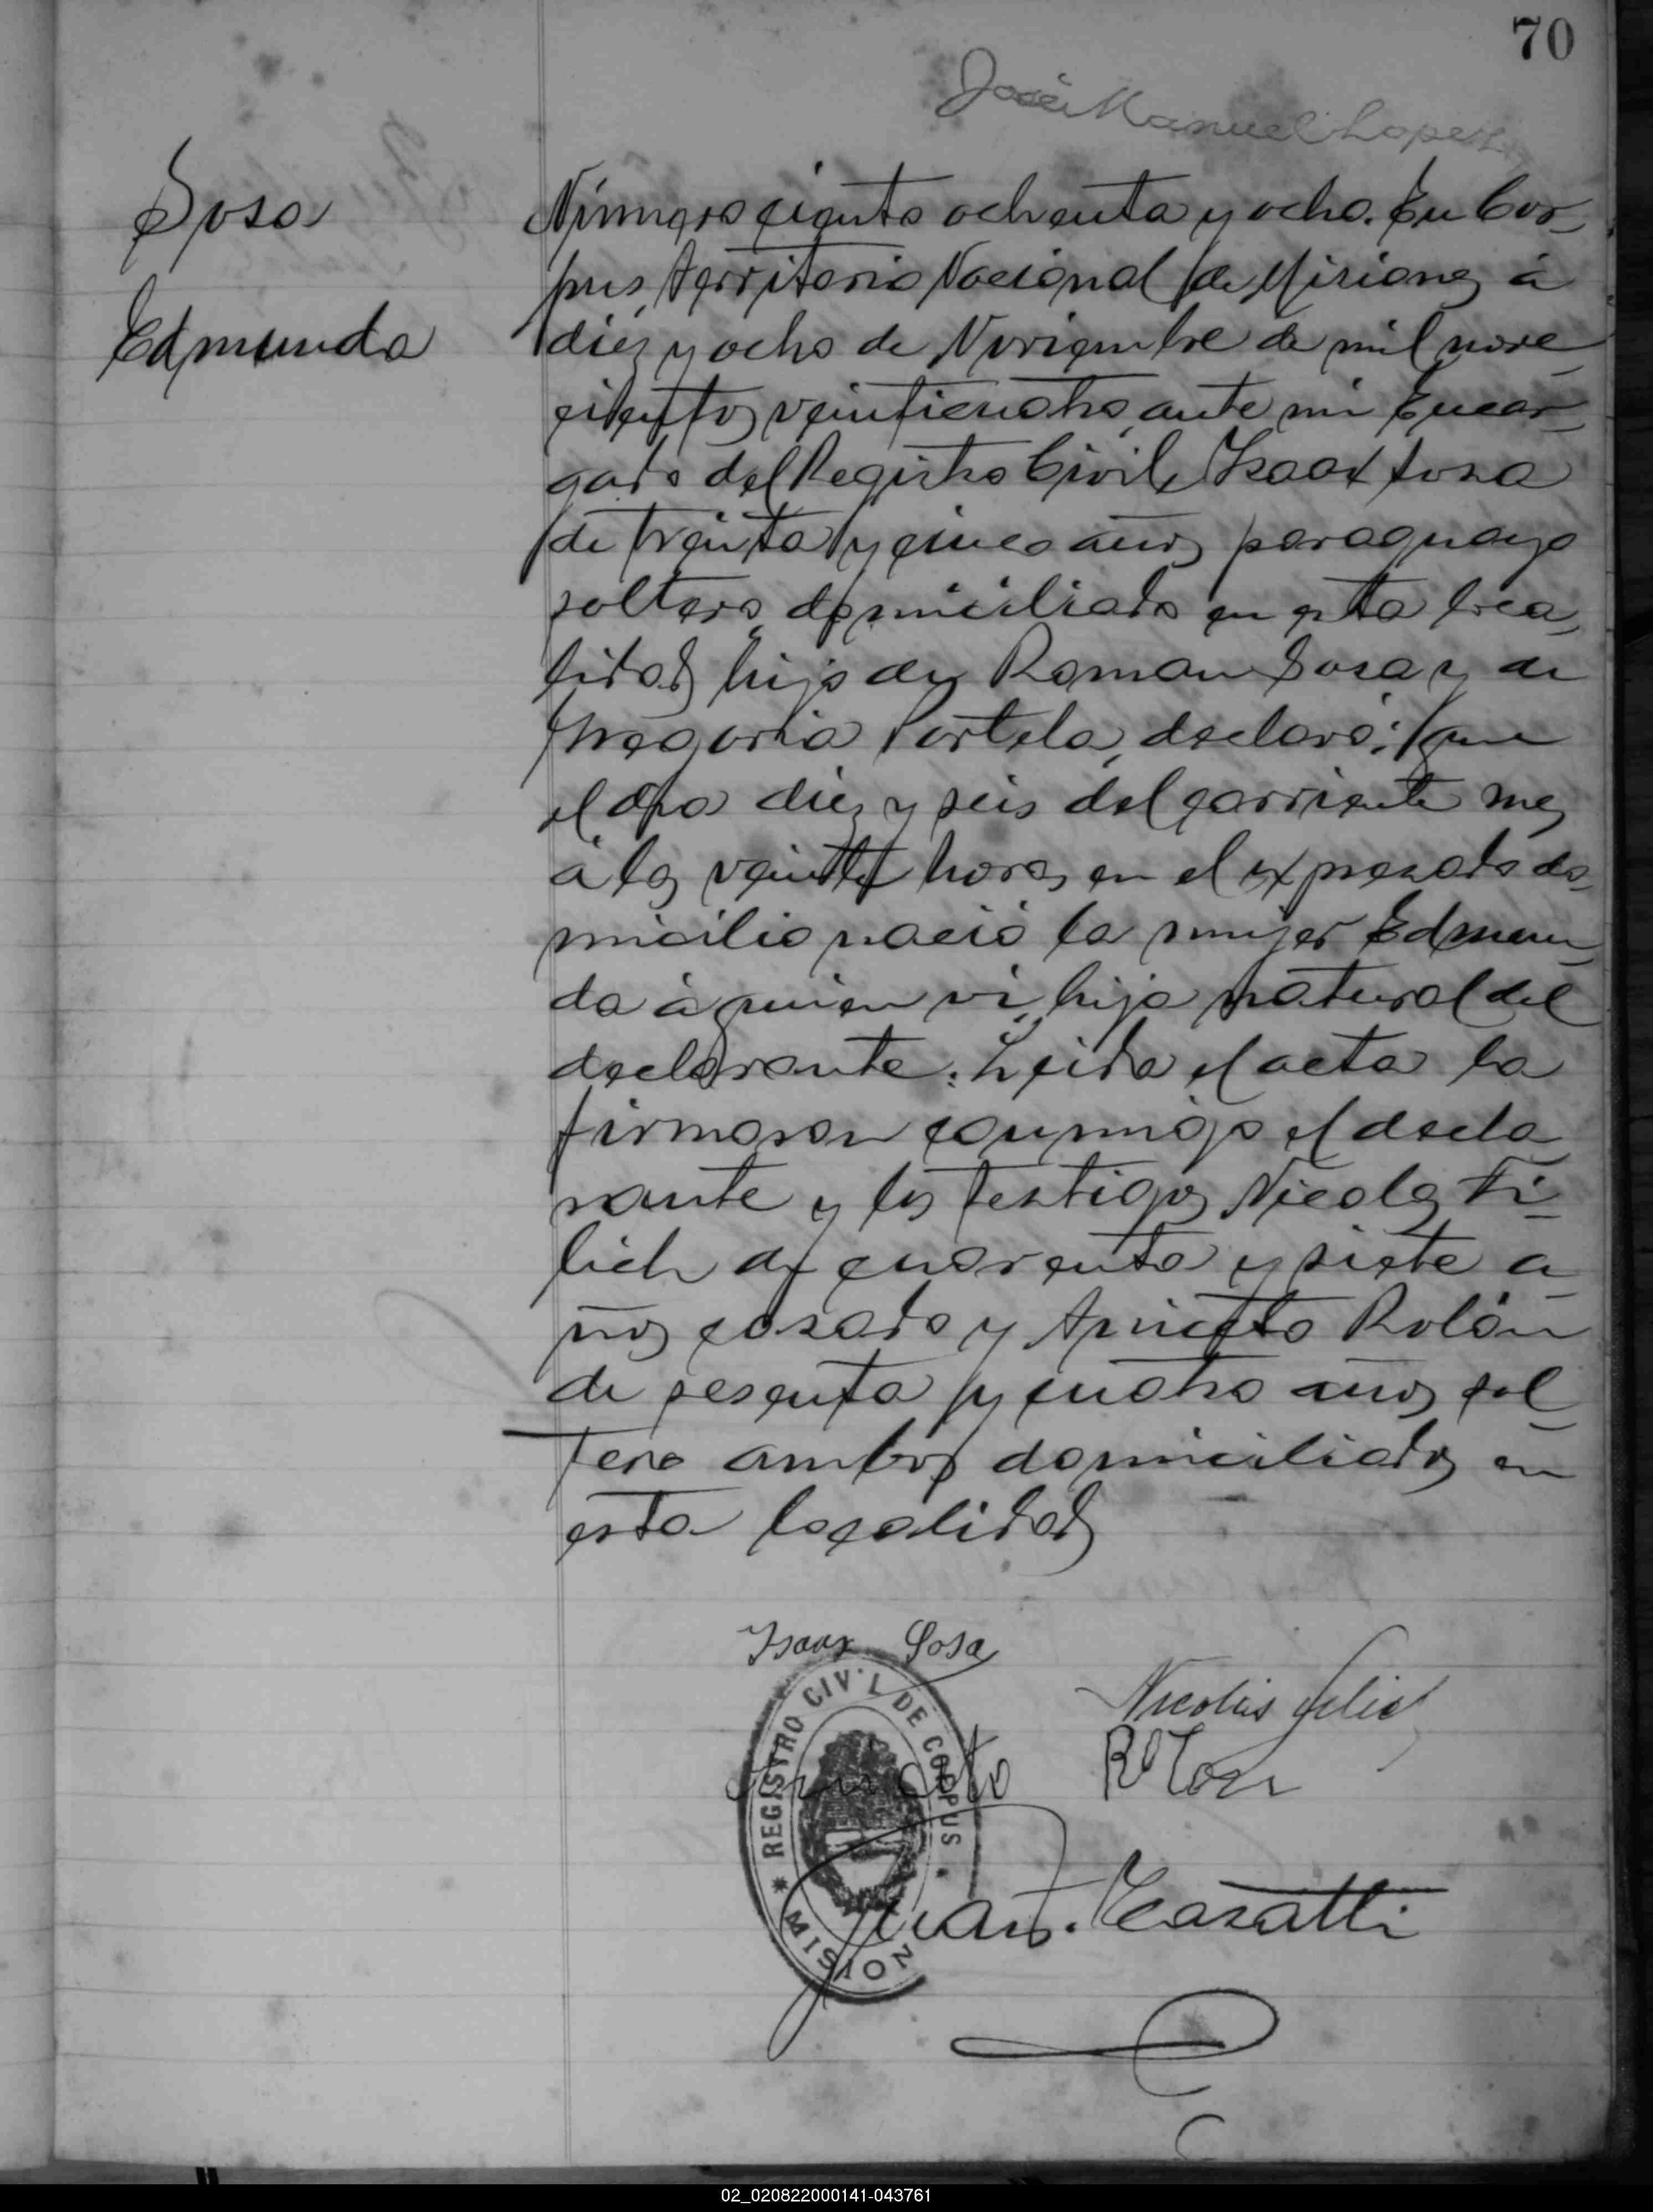 70
José Manuel Lopez
Sosa
Edmunda
Número ciento ochenta y ocho. En Cor-
pus, Territorio Nacional de Misiones á
diez y ocho de Noviembre de mil nove-
cientos veinticuatro, ante mi Encar-
gado del Registro Civil, Isaax Sosa
de treinta y cinco años paraguayo
soltero, domiciliado en esta loca-
lidad, hijo de Roman Sosa y de
Gregoria Portela, declaró: que
el día diez y seis del corriente mes
á las veinte horas en el expresado do-
micilio nació la mujer Edmun-
da á quien vi, hija natural del
declarante. Leida el acta la
firmaron conmigo el decla
rante y los testigos Nicolas Fi-
lich de cuarenta y siete a-
ños casado y Aniceto Rolón
de sesenta y cuatro años sol-
tero ambos domiciliados en
esta localidad
Isaax Sosa
Nicolás
Aniceto Rolon
Juan F. Casatti
* REGISTRO CIVIL DE CORPUS *
MISION
02_020822000141-043761